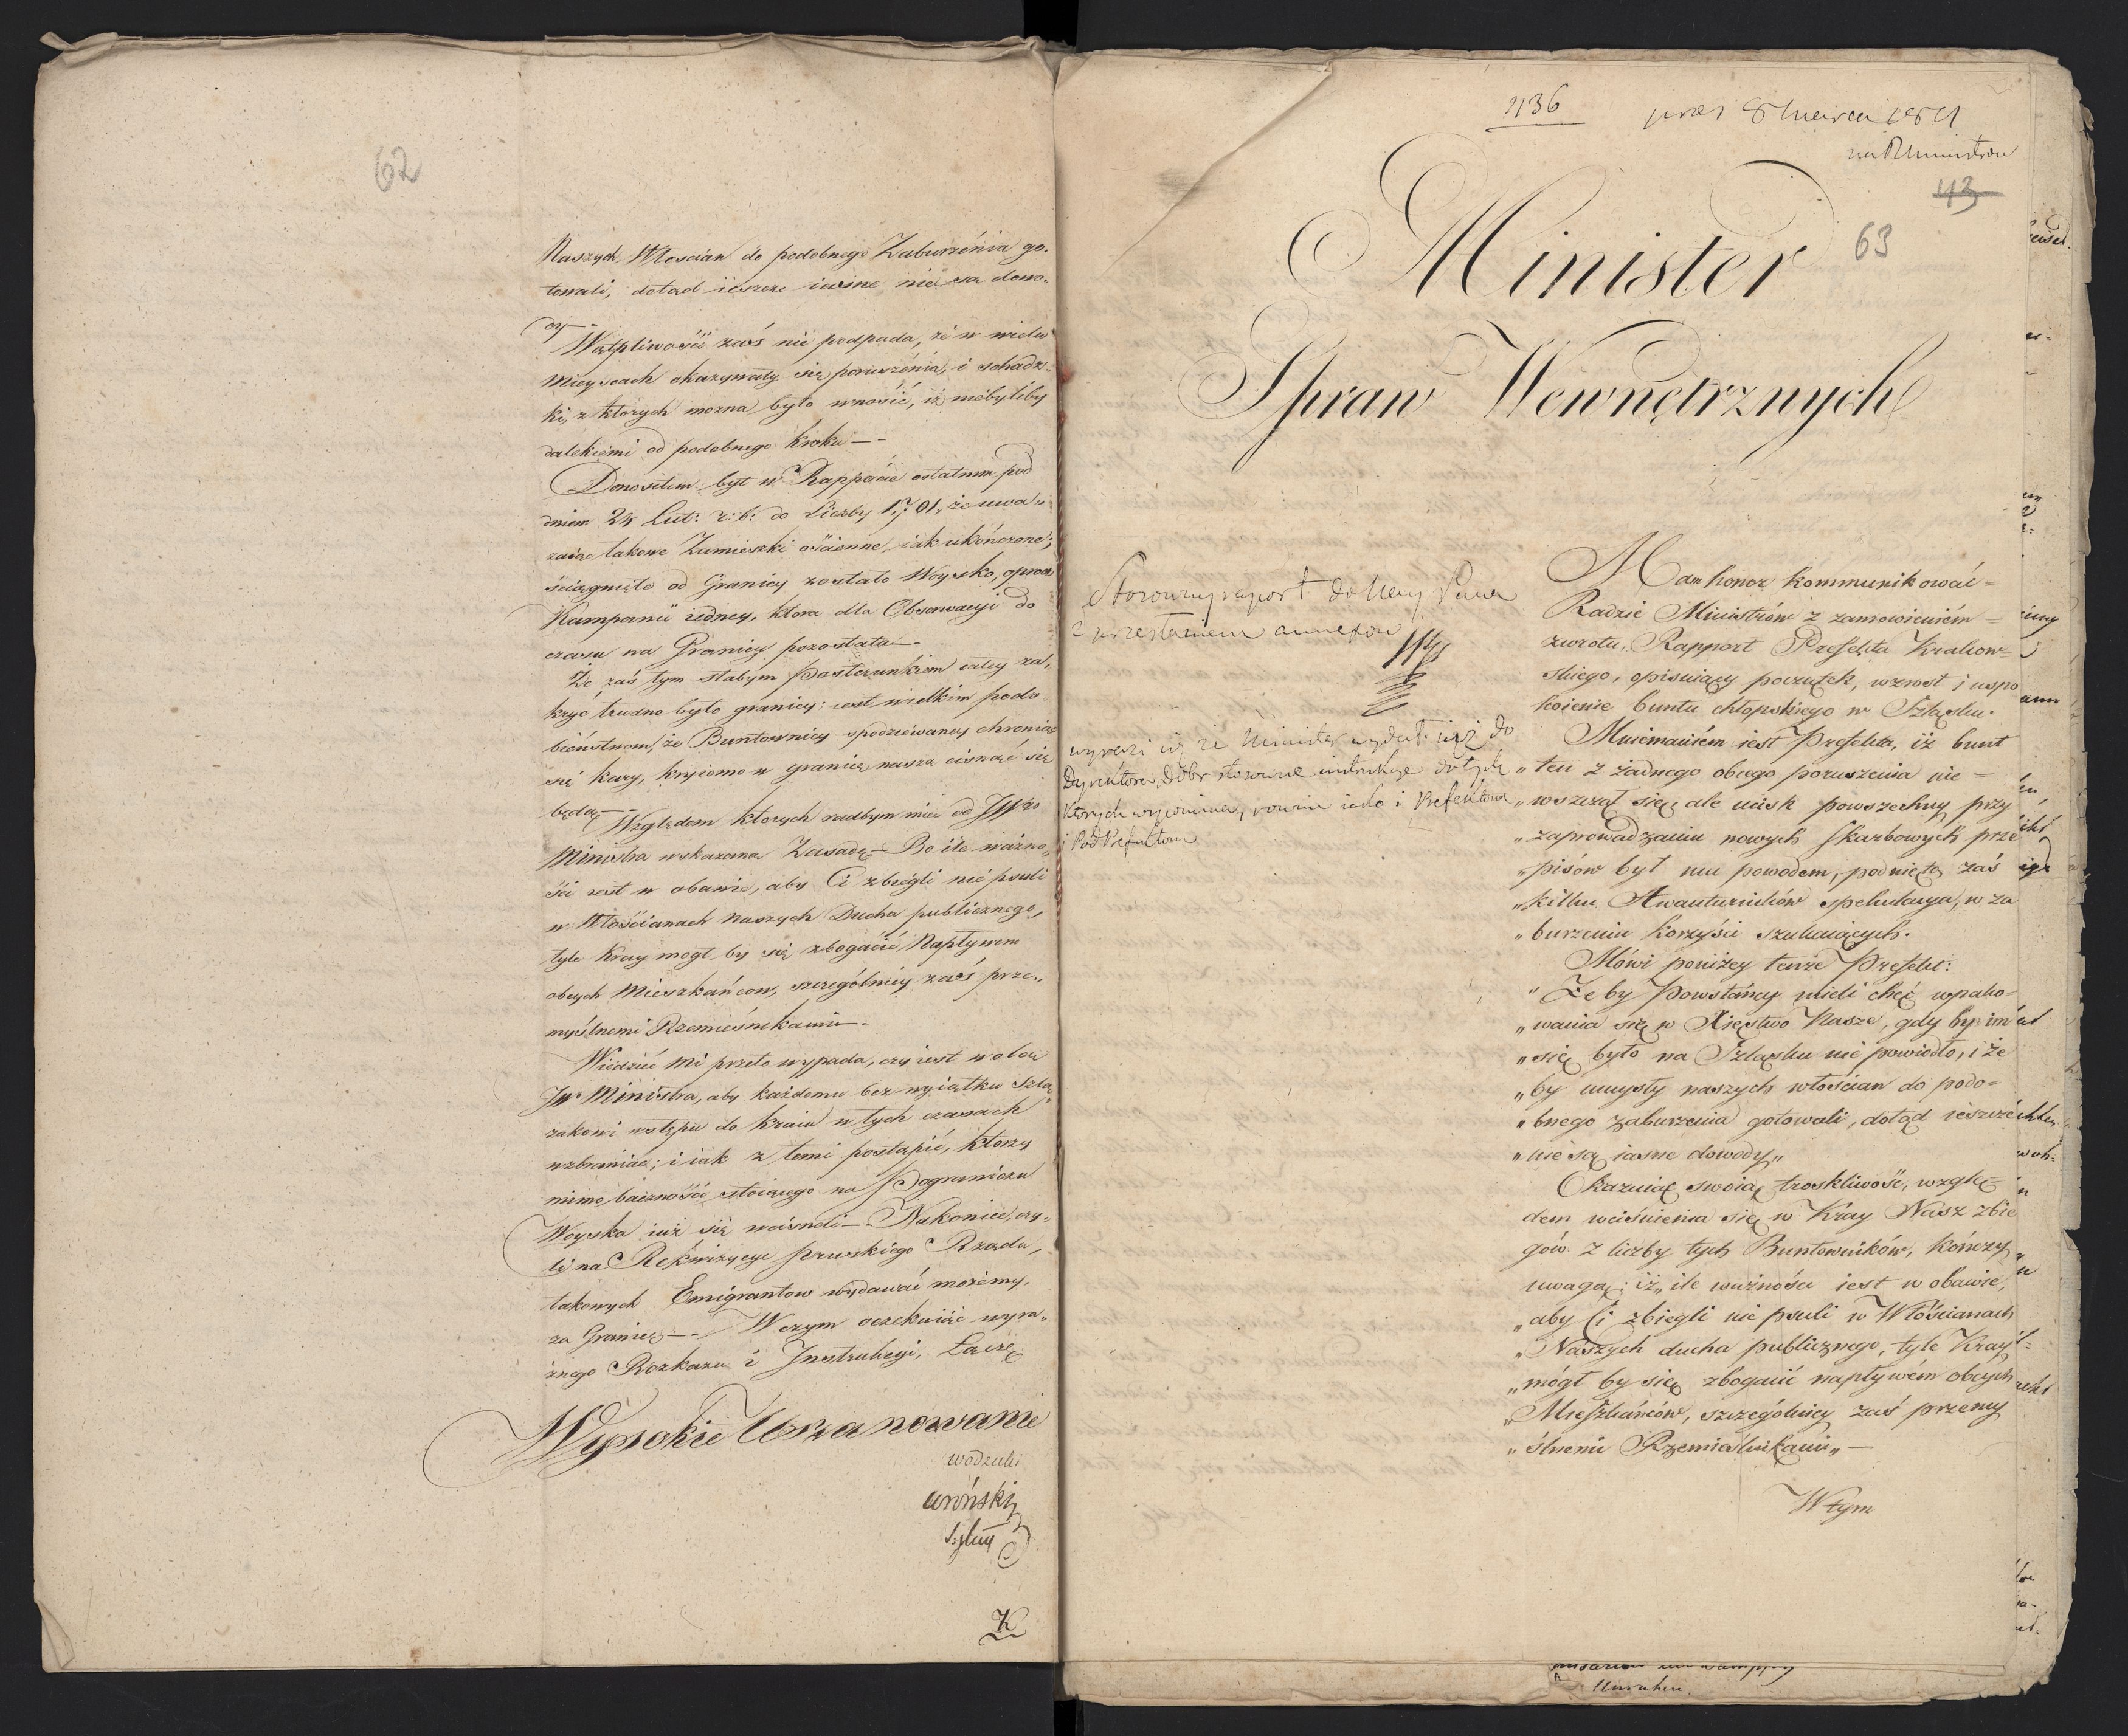 62
Naszych Włoscian do podobnego Zaburzénia go-
towali, dotąd ieszcze iasne nié są dowo-
dy —
Wątpliwości zaś nié podpada, że w wielu
mieyscach okazywały się poruszénia, i schadz-
ki, z ktorych można było wnosić, iż niebyliby
dalekiemi od podobnego kroku —
Donosiłem był w Rapporcie ostatnim pod
dniem 24 Lut: r: b: do Liczby 1701, że uwa-
żaiąc takowe Zamieszki ościenne, iak ukończone;
ściągnięte od Granicy zostało Woysko, oprocz
Kampanii iedney, ktora dla Obserwacyi do
czasu na Granicy pozostała —
Że zaś tym słabym Posterunkiem całey za-
kryć trudno było granicy: iest wielkim podo
bieństwem, że Buntownicy spodziewaney chroniąc
się kary, kryiomo w granicę naszą cisnąć się
będą —
Względem ktorych radbym mieć od JWgo
Ministra wskazaną Zasadę — Bo ile ważno-
ści iest w obawie, aby Ci zbiegli nié psuli
w Włościanach naszych Ducha publicznego,
tyle Kray mogł by się zbogacić Napływem
obcych Mieszkańcow, szczególniey zaś prze-
myślnemi Rzemieśnikami —
Wiedzieć mi przeto wypada, czy iest wolą
JW Ministra, aby każdemu bez wyiątku Szlą
zakowi wstępu do Kraiu w tych czasach
wzbraniać; i iak z temi postąpić, ktorzy
mimo baczność stoiącego na Pograniczu
Woyska iuż się wcisnęli — Nakoniec, czy-
li na Rekwizycye pruskiego Rządu,
takowych Emigrantow wydawać możémy,
za Granicę — W czym oczekuiąc wyra-
źnego Rozkazu i Instrukcyi, Łączę
Wysokie Uszanowanie
Wodzicki
K
1136
prez 8 Marca 1811
na R Ministrow
43
63
Minister
Spraw Wewnętrznych
Stosowny raport do Nay Pana
z przesłaniem annexow
wyrazi iż że Minister wydał iuż do
Dyrektora Dobr stosowne instrukcye do tych
których wspomina, rownie iako i Prefektom
i PodPrefektom
Mam honor kommunikować
Radzie Ministrów z zamowieniém
zwrotu, Rapport Prefekta Krakow-
skiego, opisuiący początek, wzrost i uspo
koienie buntu chłopskiego w Szląsku.
Mniemaniém iest Prefekta, iż bunt
„ten z żadnego obcego poruszenia nie
„wszczął się, ale ucisk powszechny przy
„zaprowadzaniu nowych skarbowych prze
„pisów był mu powodem, podnietą zaś
„kilku Awanturników spekulacya, w za
„burzeniu korzyści szukaiących.
Mówi poniżey tenże Prefekt:
„Że by Powstańcy mieli chęć wpako-
„wania się w Xięstwo Nasze, gdy by im
„się było na Szląsku nie powiodło, i że
„by umysły naszych włościan do podo-
„bnego zaburzenia gotowali, dotąd ieszcze
„nie są iasne dowody„
Okazuiąc swoią troskliwość, wzglę-
dem wciśnienia się w Kray Nasz zbie
gów z liczby tych Buntowników, kończy
uwagą: iż „ile ważności iest w obawie,
„aby Ci zbiegli nie psuli w Włościanach
„Naszych ducha publicznego, tyle Kray
„mógł by się zbogacić napływém obcych
„Mieszkańców, szczególniey zaś przemy
„ślnemi Rzemieślnikami„ —
W tym